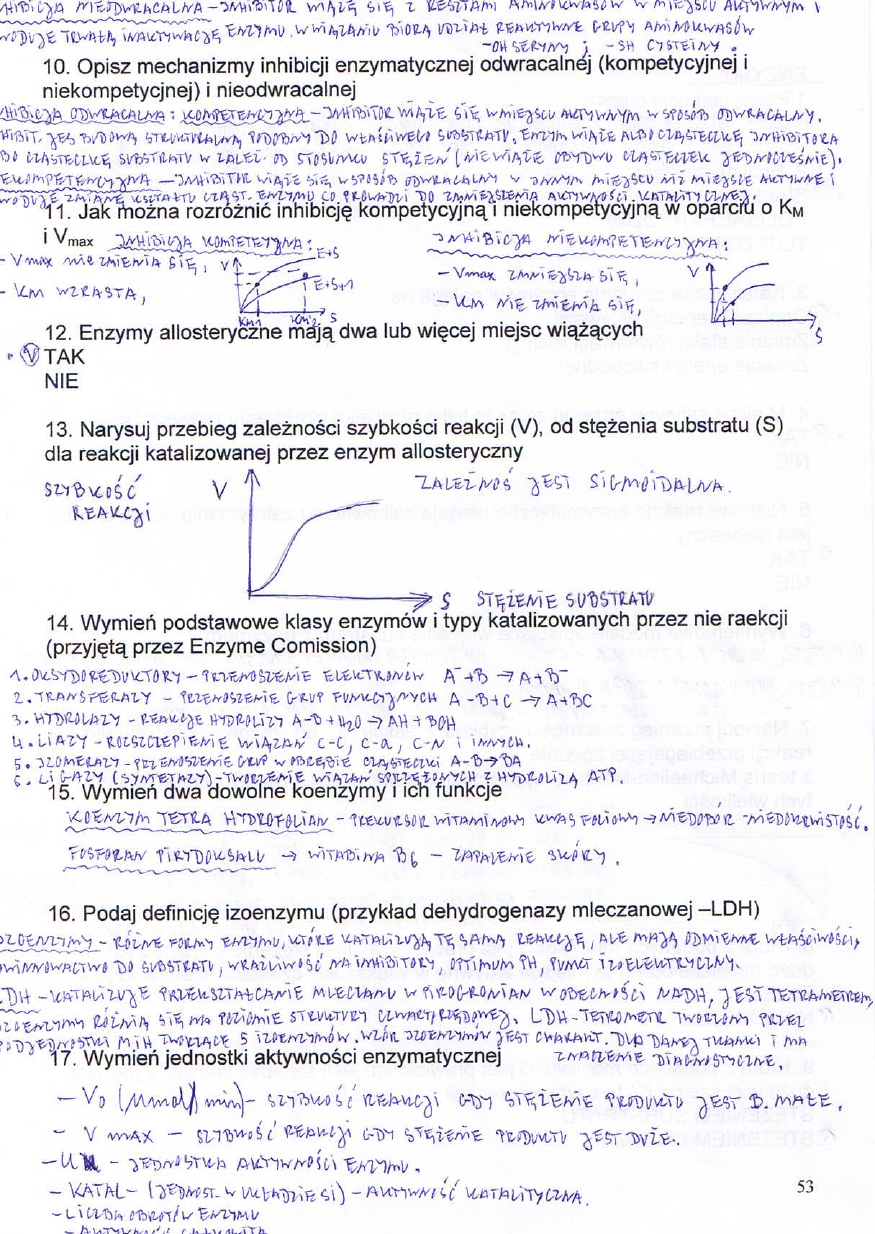 HIBICJA NIEODWRACALNA – INHIBITOR WIĄŻĘ SIĘ Z RESZTAMI AMINOKWASÓW W MIEJSCU AKTYWNYM I
WODUJE TRWAŁĄ INAKTYWACJĘ ENZYMU. W WIĄZANIU BIORĄ UDZIAŁ REAKTYWNE GRUPY AMINOKWASÓW
-OH SERYNY ; -SH CYSTEINY.
10. Opisz mechanizmy inhibicji enzymatycznej odwracalnej (kompetycyjnej i
niekompetycjnej) i nieodwracalnej
HIBICJA ODWRACALNA : KOMPETENCYJNA – INHIBITOR WIĄŻE SIĘ W MIEJSCU AKTYWNYM W SPOSÓB ODWRACALNY.
HIBIT. JES BUDOWĄ STRUKTURALNĄ PODOBNY DO WŁAŚCIWEGO SUBSTRATU. ENZYM WIĄŻE ALBO CZĄSTECZKĘ INHIBITORA
BO CZĄSTECZKĘ SUBSTRATU W ZALEŻ. OD STOSUNKU STĘŻEŃ (NIE WIĄŻE OBYDWU CZĄSTECZEK JEDNOCZEŚNIE).
EKOMPETENCYJNA – INHIBITOR WIĄŻE SIĘ W SPOSÓB ODWRACALNY W INNYM MIEJSCU NIŻ MIEJSCE AKTYWNE I
WODUJE ZMIANĘ KSZTAŁTU CZĄST. ENZYMU CO PROWADZI DO ZMNIEJSZENIA AKTYWNOŚCI KATALITYCZNEJ.
11. Jak można rozróżnić inhibicję kompetycyjną i niekompetycyjną w oparciu o KM
i Vmax INHIBICJA KOMPETETYJNA: INHIBICJA NIEKOMPETENCYJNA:
- Vmax NIE ZMIENIA SIĘ, V E+S - Vmax ZMNIEJSZA SIĘ, V
- KM WZRASTA, E+S+I - KM NIE ZMIENIA SIĘ,
KM1 KM2 S S
12. Enzymy allosteryczne mają dwa lub więcej miejsc wiążących
V TAK
NIE
13. Narysuj przebieg zależności szybkości reakcji (V), od stężenia substratu (S)
dla reakcji katalizowanej przez enzym allosteryczny
SZYBKOŚĆ V ZALEŻNOŚ JEST SIGMOIDALNA.
REAKCJI
S STĘŻENIE SUBSTRATU
14. Wymień podstawowe klasy enzymów i typy katalizowanych przez nie raekcji
(przyjętą przez Enzyme Comission)
1. OKSYDOREDUKTORY – PRZENOSZENIE ELEKTRONÓW A⁻+B → A+B⁻
2. TRANSFERAZY – PRZENOSZENIE GRUP FUNKCYJNYCH A-B+C → A+BC
3. HYDROLAZY – REAKCJE HYDROLIZY A-B+H₂O → AH+BOH
4. LIAZY – ROZSZCZEPIENIE WIĄZAŃ C-C, C-O, C-N I INNYCH.
5. IZOMERAZY – PRZENOSZENIE GRUP W OBRĘBIE CZĄSTECZKI A-B→BA
6. LIGAZY (SYNTETAZY) – TWORZENIE WIĄZAŃ SPRZĘŻONYCH Z HYDROLIZĄ ATP.
15. Wymień dwa dowolne koenzymy i ich funkcje
KOENZYM TETRA HYDROFOLIAN – PREKURSOR WITAMINOWY KWAS FOLIOWY → NIEDOBÓR - NIEDOKRWISTOŚĆ.
FOSFORAN PIRYDOKSALU → WITABINA B6 – ZAPALENIE SKÓRY.
16. Podaj definicję izoenzymu (przykład dehydrogenazy mleczanowej –LDH)
IZOENZYMY – RÓŻNE FORMY ENZYMU, KTÓRE KATALIZUJĄ TĘ SAMĄ REAKCJĘ, ALE MAJĄ ODMIENNE WŁAŚCIWOŚCI,
OWINNOWACTWO DO SUBSTRATU, WRAŻLIWOŚĆ NA INHIBITORY, OPTIMUM PH, PUNKT IZOELEKTRYCZNY.
LDH – KATALIZUJE PRZEKSZTAŁCANIE MLECZANU W PIROGRONIAN W OBECNOŚCI NADH, JEST TETRAMETREM,
IZOENZYMY RÓŻNIĄ SIĘ NA POZIOMIE STRUKTURY CZWARTRZĘDOWEJ. LDH – TETROMETR TWORZONY PRZEZ
PODJEDNOSTKI M I H TWORZĄCE 5 IZOENZYMÓW. WZÓR IZOENZYMÓW JEST CHARAKT. DLA DANEJ TKANKI I MA
17. Wymień jednostki aktywności enzymatycznej ZNACZENIE DIAGNOSTYCZNE.
– V0 (Mmol/min) – SZYBKOŚĆ REAKCJI GDY STĘŻENIE PRODUKTU JEST B. MAŁE.
– V MAX – SZYBKOŚĆ REAKCJI GDY STĘŻENIE PRODUKTU JEST DUŻE.
– U – JEDNOSTKA AKTYWNOŚCI ENZYMU.
– KATAL – (JEDNOST. W UKŁADZIE SI) – AKTYWNOŚĆ KATALITYCZNA.
53
– LICZBA OBROTÓW ENZYMU